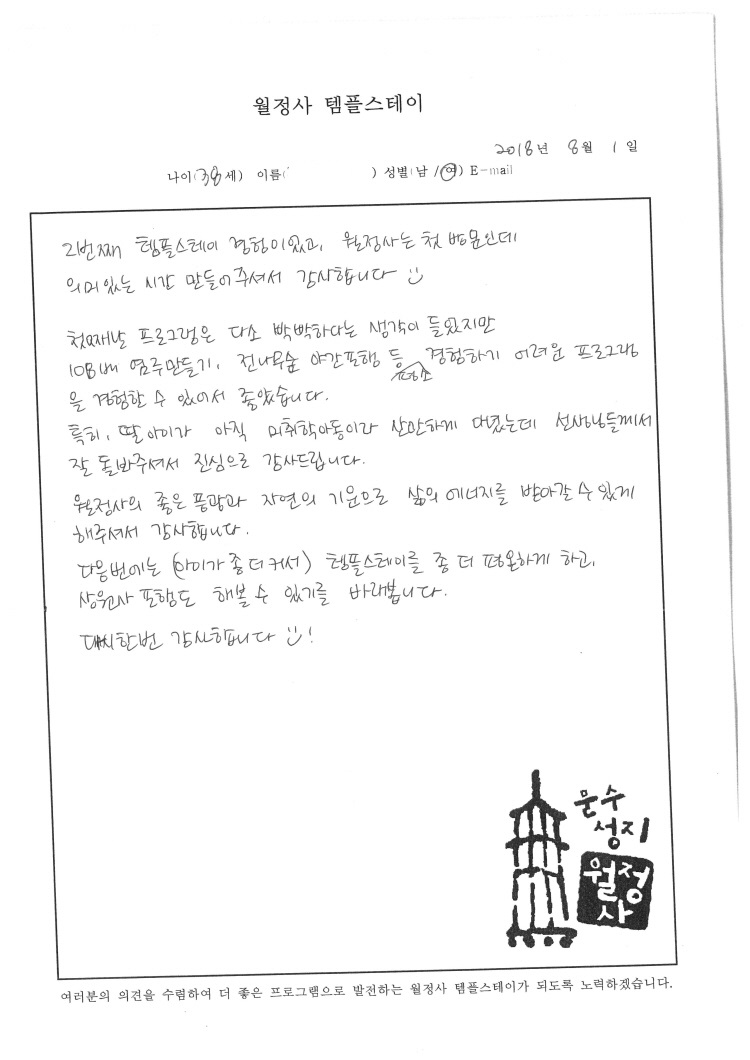 월정사 템플스테이
2018년 8월 1일
나이(38세) 이름( ) 성별(남/여) E-mail
2번째 템플스테이 경험이있고, 월정사는 첫 방문인데
의미있는 시간 만들어주셔서 감사합니다
첫째날 프로그램은 다소 빡빡하다는 생각이 들었지만
108배 염주만들기, 전나무숲 야간포행 등 평소 경험하기 어려운 프로그램
을 경험할 수 있어서 좋았습니다.
특히, 딸아이가 아직 미취학아동이라 산만하게 다녔는데 선생님들께서
잘 돌봐주셔서 진심으로 감사드립니다.
월정사의 좋은 풍광과 자연의 기운으로 삶의 에너지를 받아갈 수 있게
해주셔서 감사합니다.
다음번에는 (아이가 좀 더 커서) 템플스테이를 좀 더 평온하게 하고,
상원사 포행도 해볼 수 있기를 바래봅니다.
다시한번 감사합니다 !
문수
성지
월정
사
여러분의 의견을 수렴하여 더 좋은 프로그램으로 발전하는 월정사 템플스테이가 되도록 노력하겠습니다.